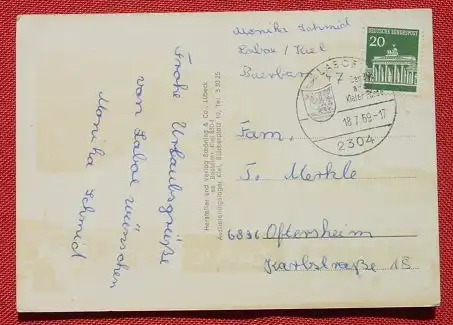 Frohe Urlaubsgrüße
von Laboe wünschen
Monika Schmid
Hersteller und Verlag Schöning & Co., Lübeck
Auslieferungslager Kiel, Tel. 5 30 25
Monika Schmid
Laboe / Kiel
DEUTSCHE BUNDESPOST
20
LABOE
Kieler
18.7.69-17
2304
Fam.
T. Merkle
6836 Oftersheim
Karlstraße 18